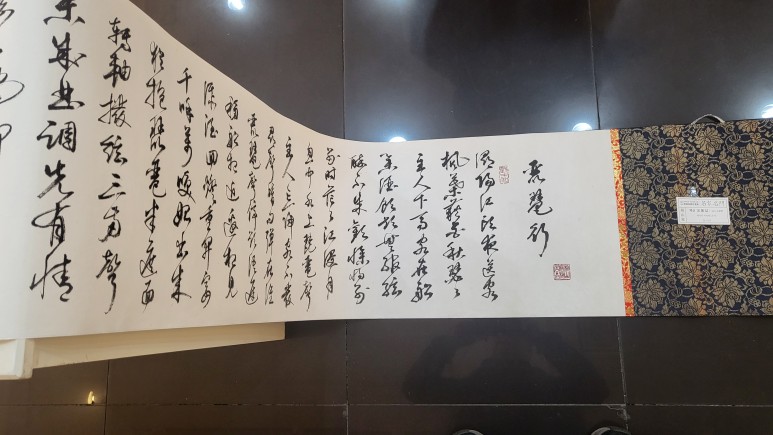 琵琶行
潯陽江頭夜送客
楓葉荻花秋瑟々
主人下馬客在船
舉酒欲飲無管絃
醉不成歡慘將別
別時茫々江浸月
忽聞水上琵琶聲
主人忘歸客不發
尋聲暗問彈者誰
琵琶聲停欲語遲
移船相近邀相見
添酒回燈重開宴
千呼萬喚始出來
猶抱琵琶半遮面
轉軸撥絃三兩聲
未成曲調先有情